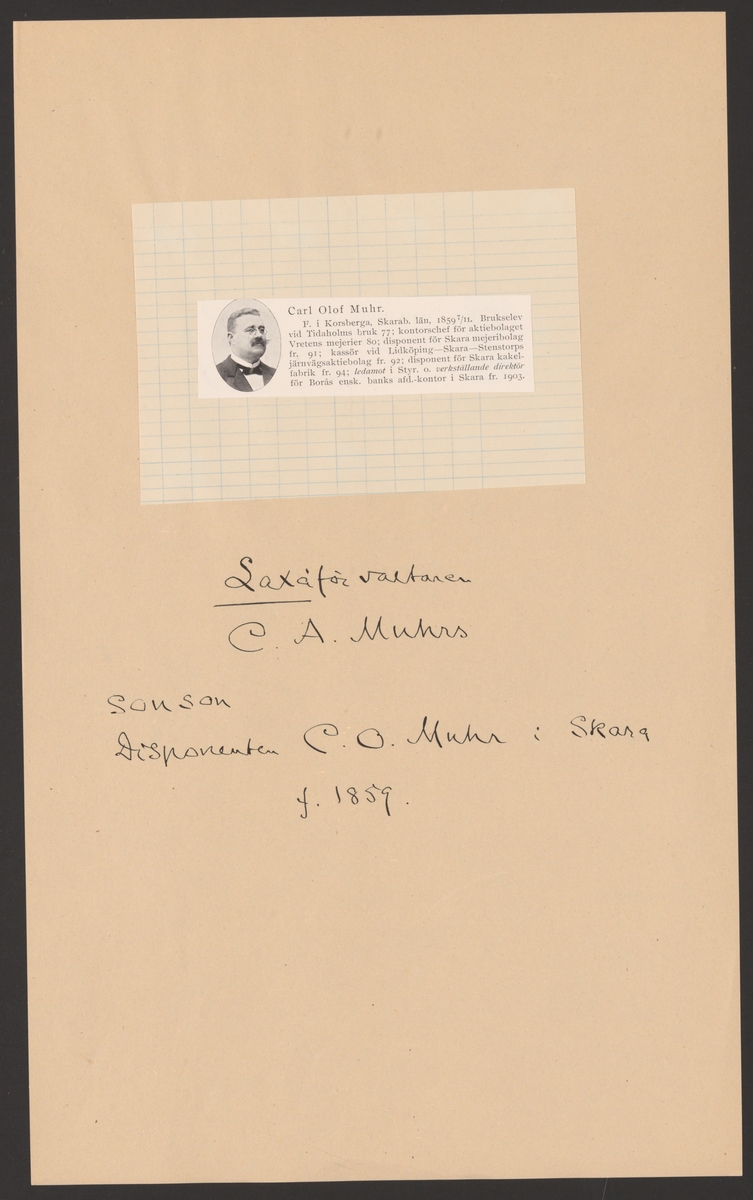 Carl Olof Muhr.
F. i Korsberga, Skarab. län, 1859 7/11. Brukselev
vid Tidaholms bruk 77; kontorschef för aktiebolaget
Vretens mejerier 80; disponent för Skara mejeribolag
fr. 91; kassör vid Lidköping—Skara—Stenstorps
järnvägsaktiebolag fr. 92; disponent för Skara kakel-
fabrik fr. 94; ledamot i Styr. o. verkställande direktör
för Borås ensk. banks afd.-kontor i Skara fr. 1903.
Laxåförvaltaren
C. A. Muhrs
sonson
Disponenten C. O. Muhr i Skara
f. 1859.